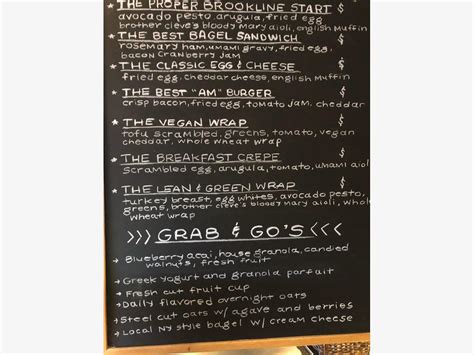 * THE PROPER BROOKLINE START $
avocado pesto, arugula, fried egg
brother cleve's bloody mary aioli, english muffin
* THE BEST BAGEL SANDWICH $
rosemary ham, umami gravy, fried egg,
bacon cranberry jam
* THE CLASSIC EGG & CHEESE $
fried egg, cheddar cheese, english muffin
* THE BEST "AM" BURGER $
crisp bacon, fried egg, tomato jam, cheddar
* THE VEGAN WRAP $
tofu scrambled, greens, tomato, vegan
cheddar, whole wheat wrap
* THE BREAKFAST CREPE $
scrambled egg, arugula, tomato, umami aioli
* THE LEAN & GREEN WRAP $
turkey breast, egg whites, avocado pesto,
greens, brother cleve's bloody mary aioli, whole
wheat wrap
>>> GRAB & GO'S <<<
→ Blueberry acai, house granola, candied
walnuts, fresh fruit
→ Greek yogurt and granola parfait
→ Fresh cut fruit cup
→ Daily flavored overnight oats
→ Steel cut oats w/ agave and berries
→ Local NY style bagel w/ cream cheese